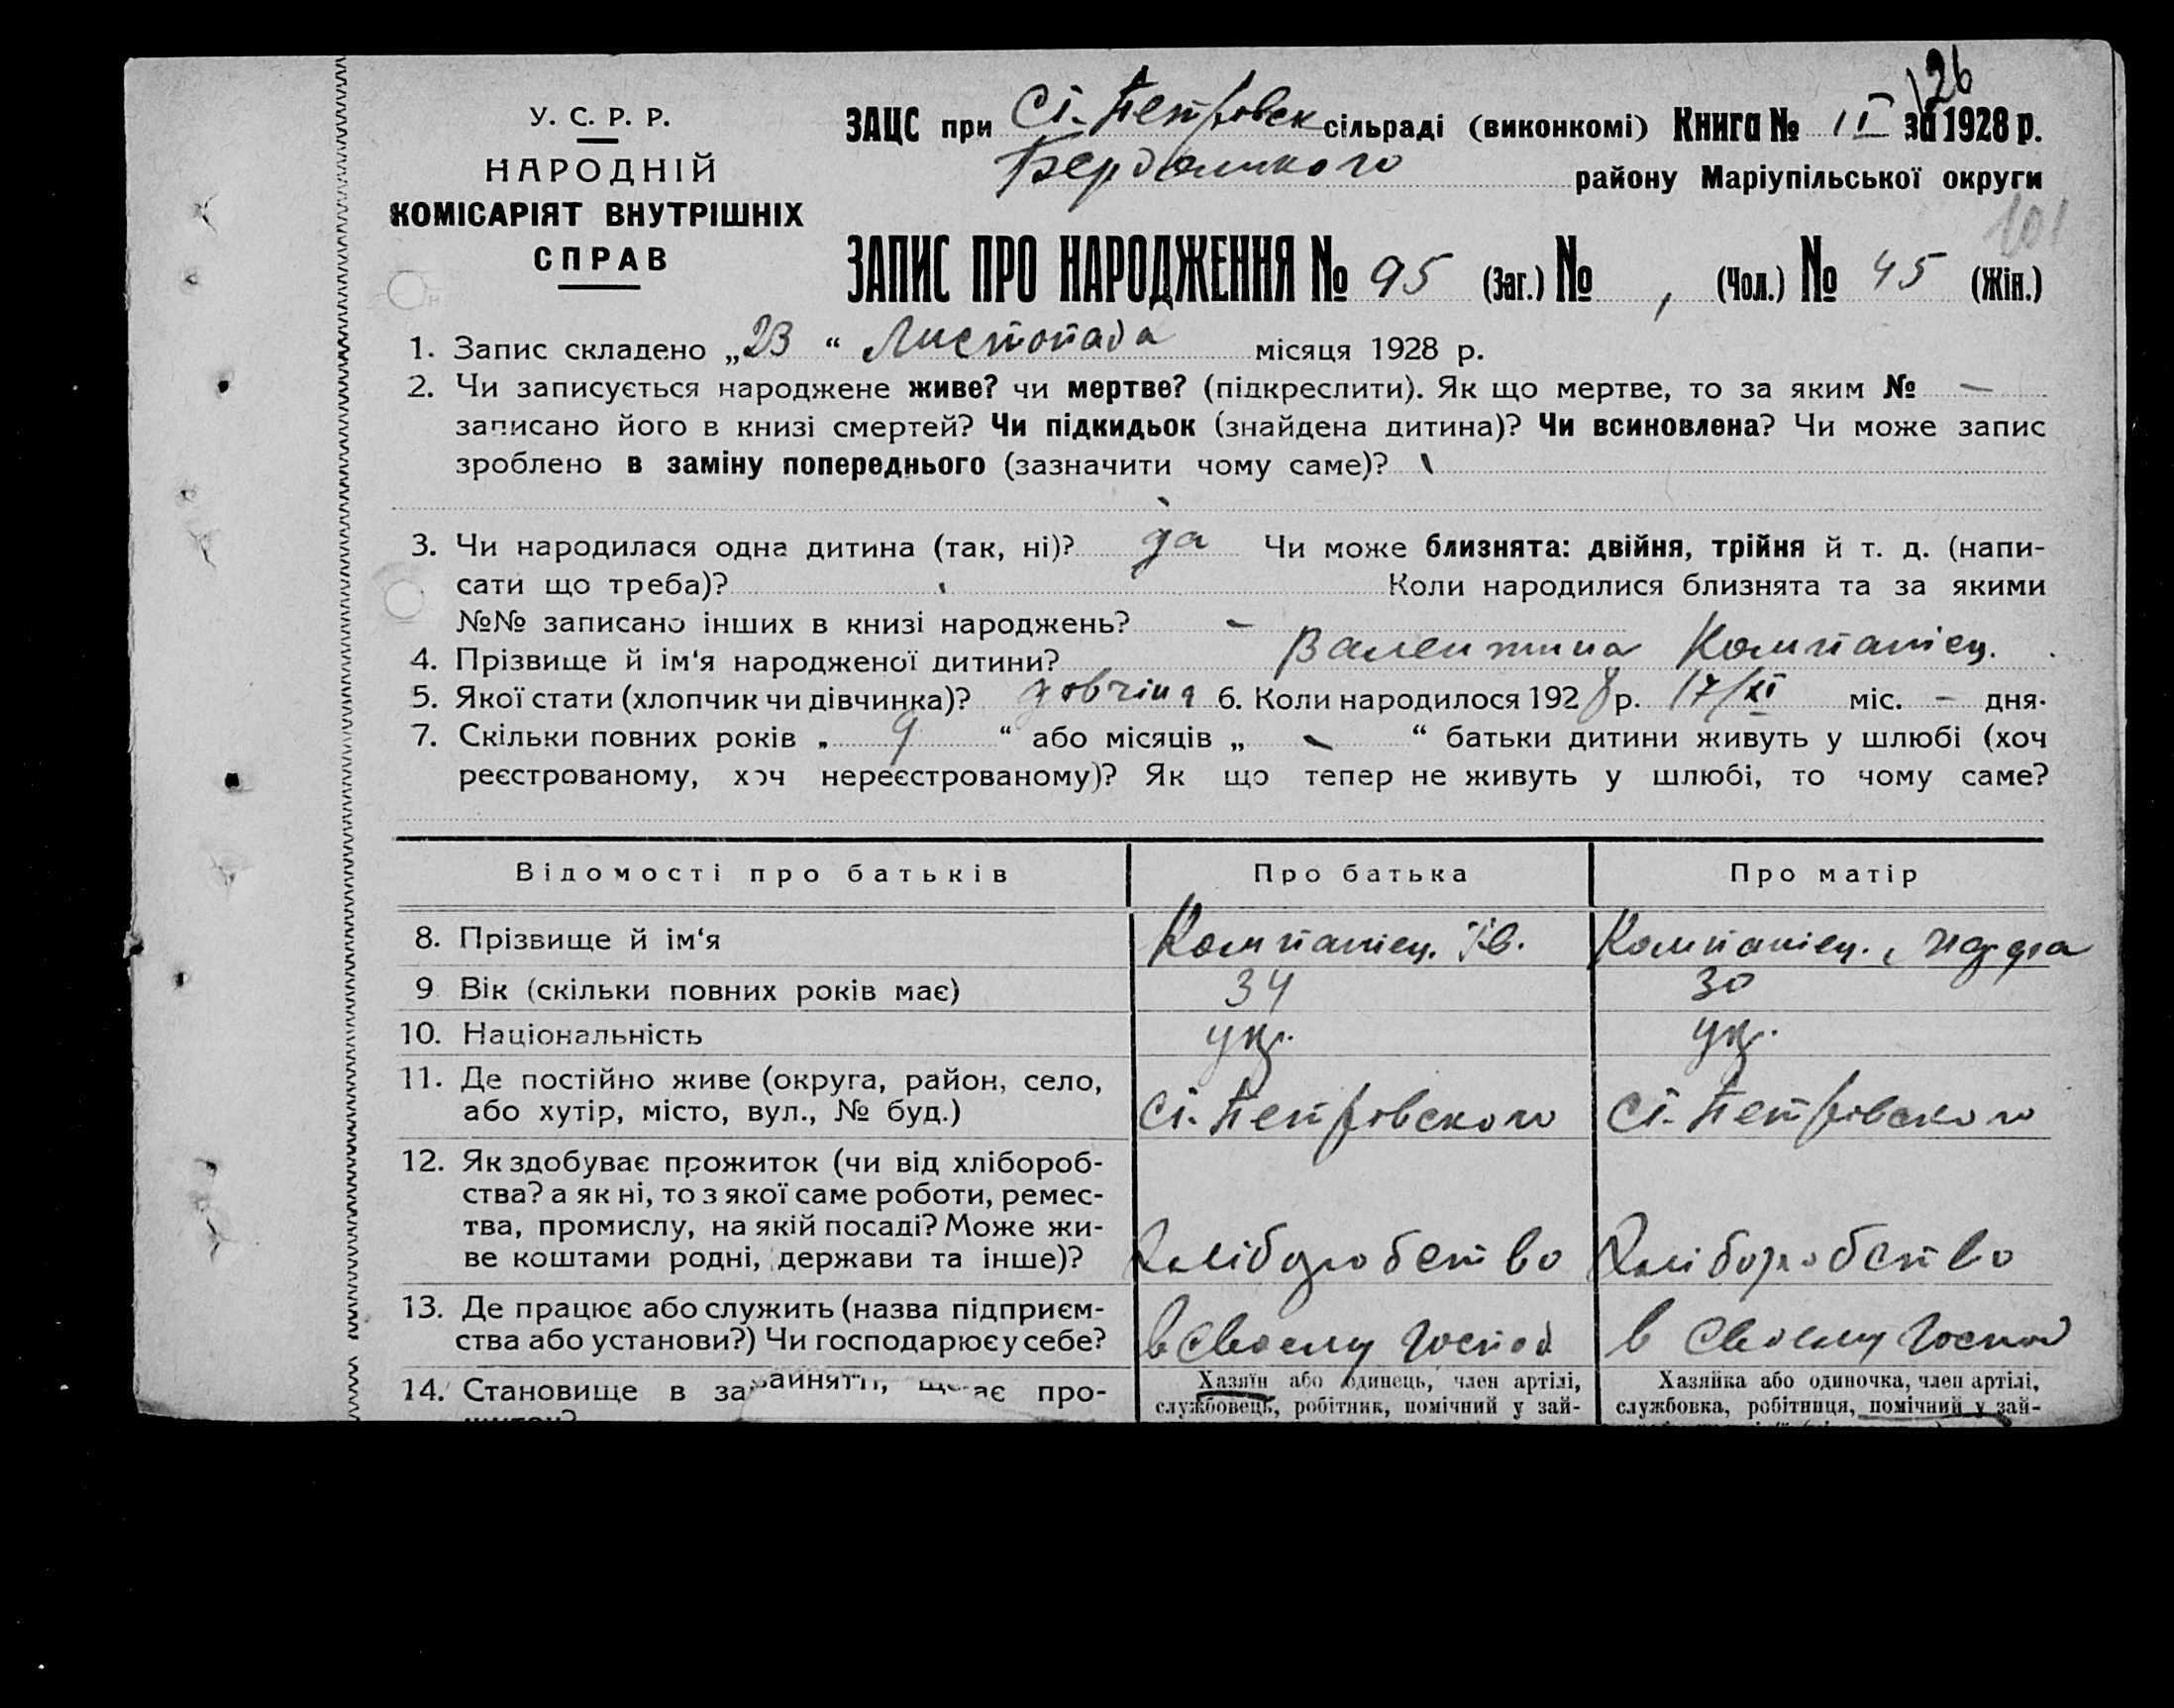 126
У. С. Р. Р.
ЗАЦС при Сі. Петровск сільраді (виконкомі) Книга № II за 1928 р.
НАРОДНІЙ
Бердянского району Маріупільської округи
КОМІСАРІЯТ ВНУТРІШНІХ
101
СПРАВ
ЗАПИС ПРО НАРОДЖЕННЯ № 95 (Заг.) № (Чол.) № 45 (Жін.)
1. Запис складено „23“ Листопада місяця 1928 р.
2. Чи записується народжене живе? чи мертве? (підкреслити). Як що мертве, то за яким № —
записано його в книзі смертей? Чи підкидьок (знайдена дитина)? Чи всиновлена? Чи може запис
зроблено в заміну попереднього (зазначити чому саме)?
3. Чи народилася одна дитина (так, ні)? да Чи може близнята: двійня, трійня й т. д. (напи-
сати що треба)? Коли народилися близнята та за якими
№№ записано інших в книзі народжень? –
4. Прізвище й ім'я народженої дитини? Валентина Компаніец.
5. Якої стати (хлопчик чи дівчинка)? 6. Коли народилось 1928 р. 17/XI міс. – дня.
7. Скільки повних років „ 9 “ або місяців „ – “ батьки дитини живуть у шлюбі (хоч
реєстрованому, хоч нереєстрованому)? Як що тепер не живуть у шлюбі, то чому саме?
Відомості про батьків Про батька Про матір
8. Прізвище й ім'я Компаніец. Ів. Компаніец.
9 Вік (скільки повних років має) 34 30
10. Національність укр. укр.
11. Де постійно живе (округа, район, село,
або хутір, місто, вул., № буд.) Сі. Петровского Сі. Петровского
12. Як здобуває прожиток (чи від хлібороб-
ства? а як ні, то з якої саме роботи, ремес-
тва, промислу, на якій посаді? Може жи-
ве коштами родні, держави та інше)? Хліборобство Хліборобство
13. Де працює або служить (назва підприєм-
ства або установи?) Чи господарює у себе? в своему господ в своему господ
14. Становище в за айнятті, ає про- Хазяїн або одинець, член артілі, Хазяйка або одиночка, член артілі,
службовець, робітник, помічний у зай- службовка, робітниця, помічний у зай-